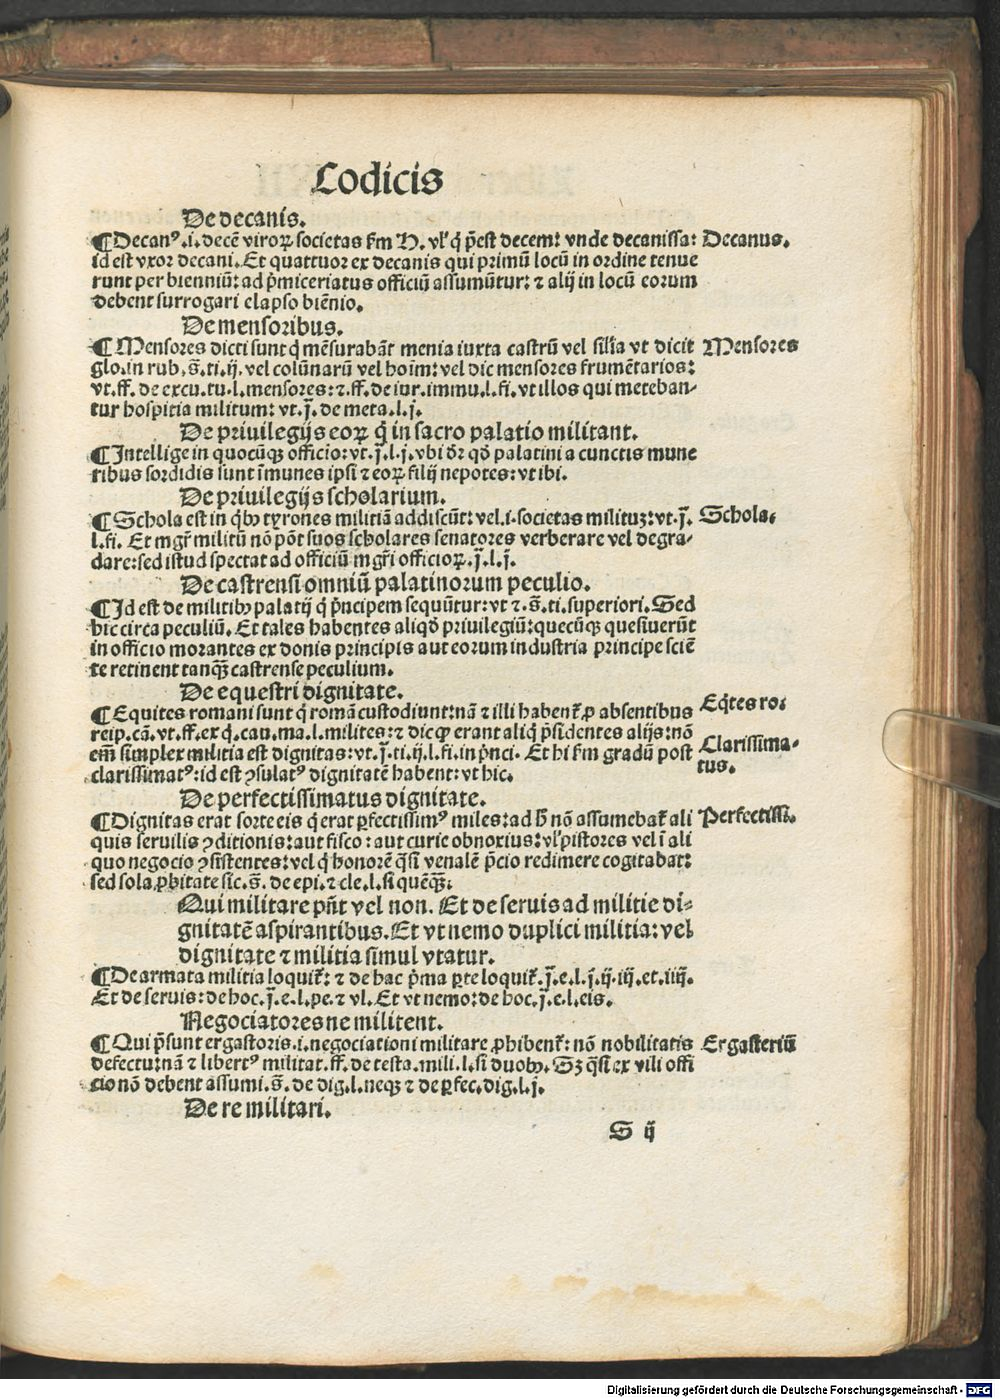 Codicis
De decanis.
¶Decanꝰ.i.decē viroꝝ societas ẜm H. vl' q̇ p̄est decem: vnde decanissa: Decanus.
id est vxor decani. Et quattuor ex decanis qui primū locū in ordine tenue
runt per bienniū: ad p̄miceriatus officiū assumūtur: ⁊ alij in locū eorum
debent surrogari elapso biēnio.
De mensoribus.
¶Mensores dicti sunt q̇ mēsurabāt menia iuxta castrū vel silīa vt dicit Mensores
glo.in rub.s̄.ti.ij. vel colūnarū vel hoīm: vel dic mensores frumētarios:
vt.ff. de excu.tu.l.mensores: ⁊.ff.de iur.immu.l.fi.vt illos qui meteban-
tur hospitia militum: vt.j̄.de meta.l.j.
De priuilegijs eoꝝ q̇ in sacro palatio militant.
¶Intellige in quocūqꝫ officio: vt.j.l.j.vbi dr̄ qd̓ palatini a cunctis mune
ribus sordidis sunt īmunes ipsi ⁊ eoꝝ filij nepotes: vt ibi.
De priuilegijs scholarium.
¶Schola est in q̇bꝰ tyrones militiā addiscūt: vel.i.societas milituꝫ: vt.j̄. Schola.
l.fi. Et mgr̄ militū nō pōt suos scholares senatores verberare vel degra-
dare: sed istud spectat ad officiū mgr̄i officioꝝ.j̄.l.j̄.
De castrensi omniū palatinorum peculio.
¶Id est de militibꝰ palatij q̇ p̄ncipem sequūtur: vt ⁊.s̄.ti.superiori. Sed
hic circa peculiū. Et tales habentes aliqd̓ priuilegiū: quecūqꝫ quesiuerūt
in officio morantes ex donis principis aut eorum industria principe sciē
te retinent tanqꝫ̄ castrense peculium.
De equestri dignitate.
¶Equites romani sunt q̇ romā custodiunt: nā ⁊ illi habent̄ ꝓ absentibus Eq̇tes ro.
reip.cā.vt.ff.ex q̇.cau.ma.l.milites: ⁊ dic ꝙ erant aliq̇ p̄sidentes alijs: nō
em̄ simplex militia est dignitas: vt.j̄.ti.ij.l.fi.in p̄nci. Et hi ẜm gradū post Clarissima-
clarissimatꝰ: id est ꝯsulatꝰ dignitatē habent: vt hic. tus.
De perfectissimatus dignitate.
¶Dignitas erat sorte eis q̇ erat ꝑfectissimꝰ miles: ad h̄ nō assumebat̄ ali Perfectissi.
quis seruilis ꝯditionis: aut fisco: aut curie obnoxius: vl' pistores vel ī ali
quo negocio ꝯsistentes: vel q̇ honorē q̄si venalē p̄cio redimere cogitabat:
sed sola ꝓbitate sic.s̄. de epi.⁊ cle.l.si quēqꝫ̄.
Qui militare pn̄t vel non. Et de seruis ad militie di-
gnitatē aspirantibus. Et vt nemo duplici militia: vel
dignitate ⁊ militia simul vtatur.
¶De armata militia loquit̄: ⁊ de hac p̄ma ꝑte loquit̄.j̄.e.l.j̄.ij.iij.et.iiij.
Et de seruis: de hoc.j̄.e.l.pe.⁊ vl. Et vt nemo: de hoc.j̄.e.l.eis.
Negociatores ne militent.
¶Qui p̄sunt ergastoris.i.negociationi militare ꝓhibent̄: nō nobilitatis Ergasteriū
defectu: nā ⁊ libertꝰ militat.ff.de testa.mili.l.si duobꝰ. Sꝫ q̄si ex vili offi
cio nō debent assumi.s̄.de dig.l.neqꝫ ⁊ de ꝑfec.dig.l.j.
De re militari.
S ij
Digitalisierung gefördert durch die Deutsche Forschungsgemeinschaft - DFG